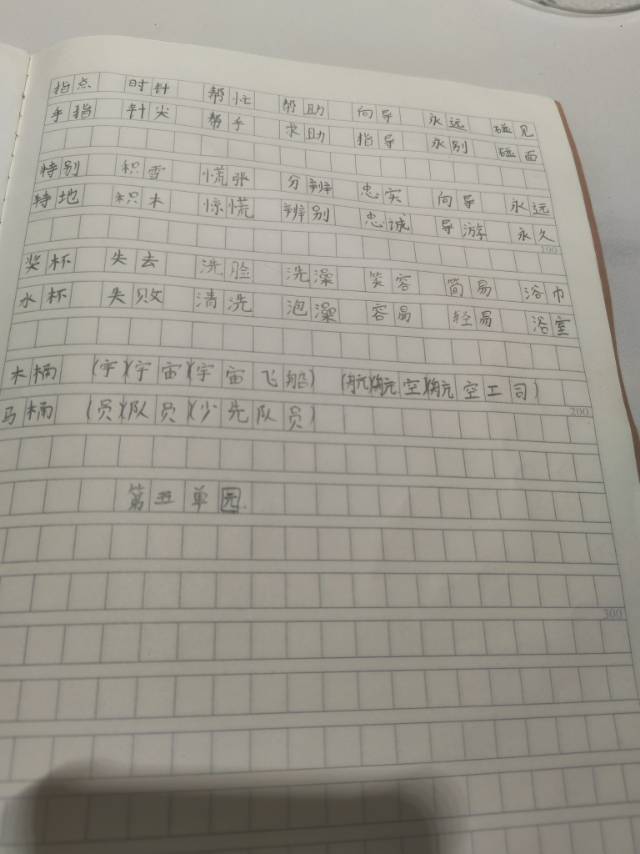 指点 时针 帮忙 帮助 向导 永远 碰见
手指 针尖 帮手 求助 指导 永别 碰面
特别 积雪 慌张 分辨 忠实 向导 永远
特地 积木 惊慌 辨别 忠诚 导游 永久
100
奖杯 失去 洗脸 洗澡 笑容 简易 浴巾
水杯 失败 清洗 泡澡 容易 轻易 浴室
木桶 (宇)(宇宙)(宇宙飞船) (航)(航空)(航空工司)
200
马桶 (员)(队员)(少先队员)
第五单园.
300